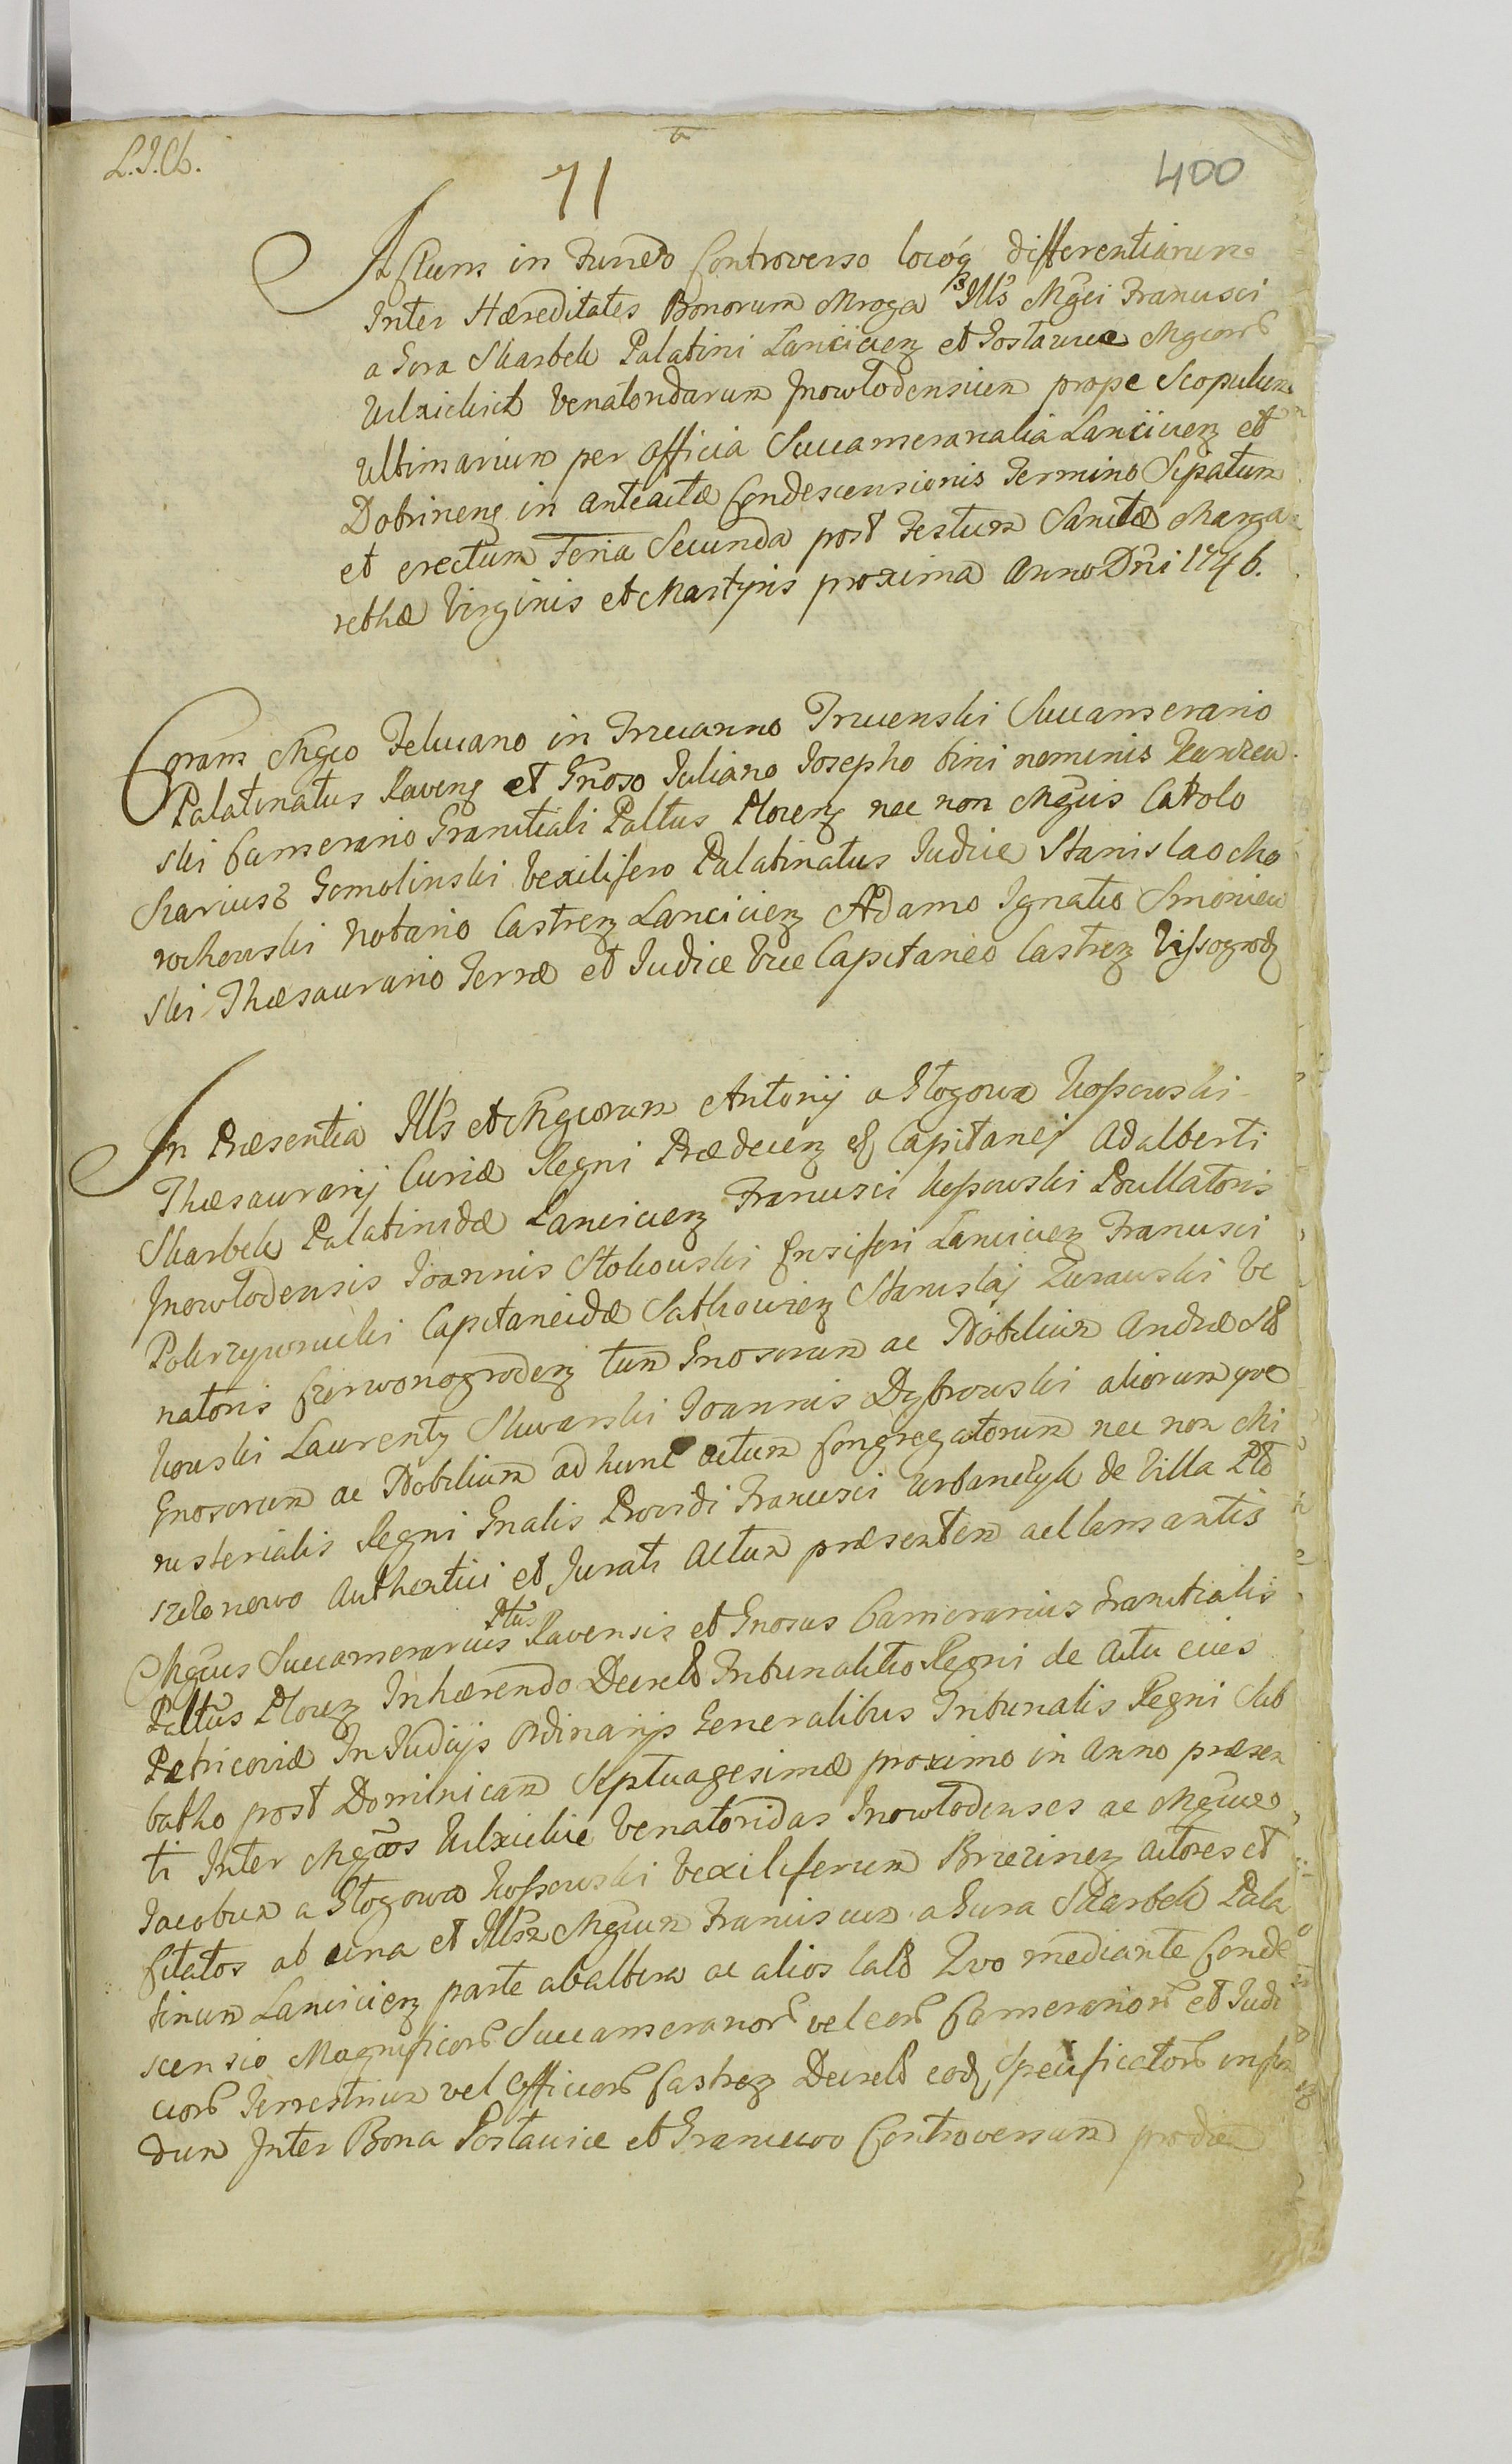 L.J.Ch.
71
400
Actum in Fundo Controverso locóq differentiarum
Inter Hæreditates Bonorum Mroga Ills Mgci Francisci
a Gora Skarbek Palatini Lancicien et Postawice Mgcor
Wilxickich Venatoridarum Inowlodensium prope Scopulum
Ultimarium per Officia Succameraralia Lancicien et
Dobrinen in anteacta Condescensionis Termino Sipatum
et erectum Feria Secunda post Festum Sanctæ Marga
rethæ Virginis et Martyris proxima Anno Dni 1746.
Coram Mgco Feliciano in Trzcianno Trzcienski Succamerario
Palatinatus Raven et Gnoso Juliano Josepho bini nominis
ski Camerario Granitiali Paltus Plocen nec non Mgcis Carolo
Skariusz Gomolinski Vexilifero Palatinatus Judice Stanislao Mo
rochowski Notario Castren Lancicien Adamo Ignatio Smoniew
ski Thesaurario Terræ et Judice Vice Capitaneo Castren Vissogrod
In Præsentia Ills et Mgcorum Antonij a Głogowa Kossowski
Thæsaurarij Curiæ Regni Prædecen & Capitanei Adalberti
Skarbek Palatinidæ Lancicien Francisci Kossowski Pocillatoris
Inowlodensis Joannis Stokowski Ensiferi Lancicien Francisci
Pokrzywnicki Capitaneidæ Stanislaj Zurawski Ve
natoris Czerwonogroden tum Gnosorum ac Nobilium Andreæ Sko
kowski Laurenty Skwarski Joannis Dybowski aliorumque
Gnosorum ac Nobilium ad hunc actum Congregatorum nec non Mi
nisterialis Regni Gnalis Providi Francisci Urbanczyk de Villa Plo
szelenowo Authentici et Jurati Actum præsentem acclamantis
Mgcus Succamerarius Pltus Ravensis et Gnosus Camerarius Granitialis
Paltus Plocen Inhærendo Decreto Tribunalitio Regni de Actu eius
Petricoviæ In Judicijs Ordinarijs Generalibus Tribunalis Regni Sab
batho post Dominicam Septuagesimæ proximo in Anno præsen
ti Inter Mgcos Wilxickie Venatoridas Inowlodenses ac Mgcum
Jacobum a Głogowa Kossowski Vexiliferum Brzezinen Actores et
Citatos ab una et Illsm Mgcum Franciscum a Gora Skarbek Pala
tinum Lancicien parte ab altera ac alios lato Quo mediante Conde
scensio Magnificor Succamerarior vel eor Camerarior et Judi
cior Terrestrium vel Officior Castren Decreto eod Specificator in fun
dum Inter Bona Postawice et Francewo Controversum prodie